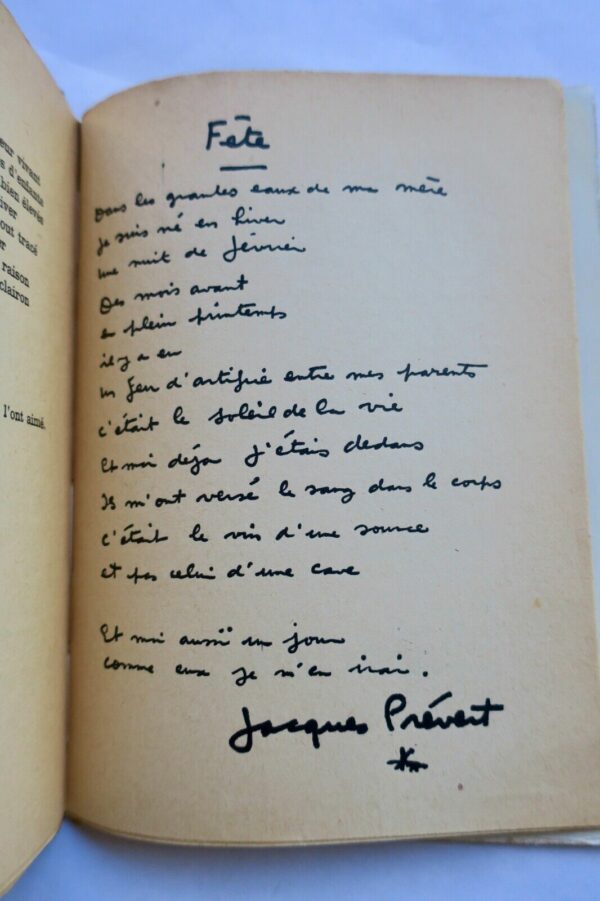 eur vivant
s d'enfants
bien élevés
iver
out tracé
er
raison
clairon
l'ont aimé.
Fête
Dans les grandes eaux de ma mère
je suis né en hiver
une nuit de février
Des mois avant
en plein printemps
il y a eu
un feu d'artifice entre mes parents
c'était le soleil de la vie
Et moi déjà j'étais dedans
Ils m'ont versé le sang dans le corps
c'était le vin d'une source
et pas celui d'une cave
Et moi aussi un jour
comme eux je m'en irai.
Jacques Prévert